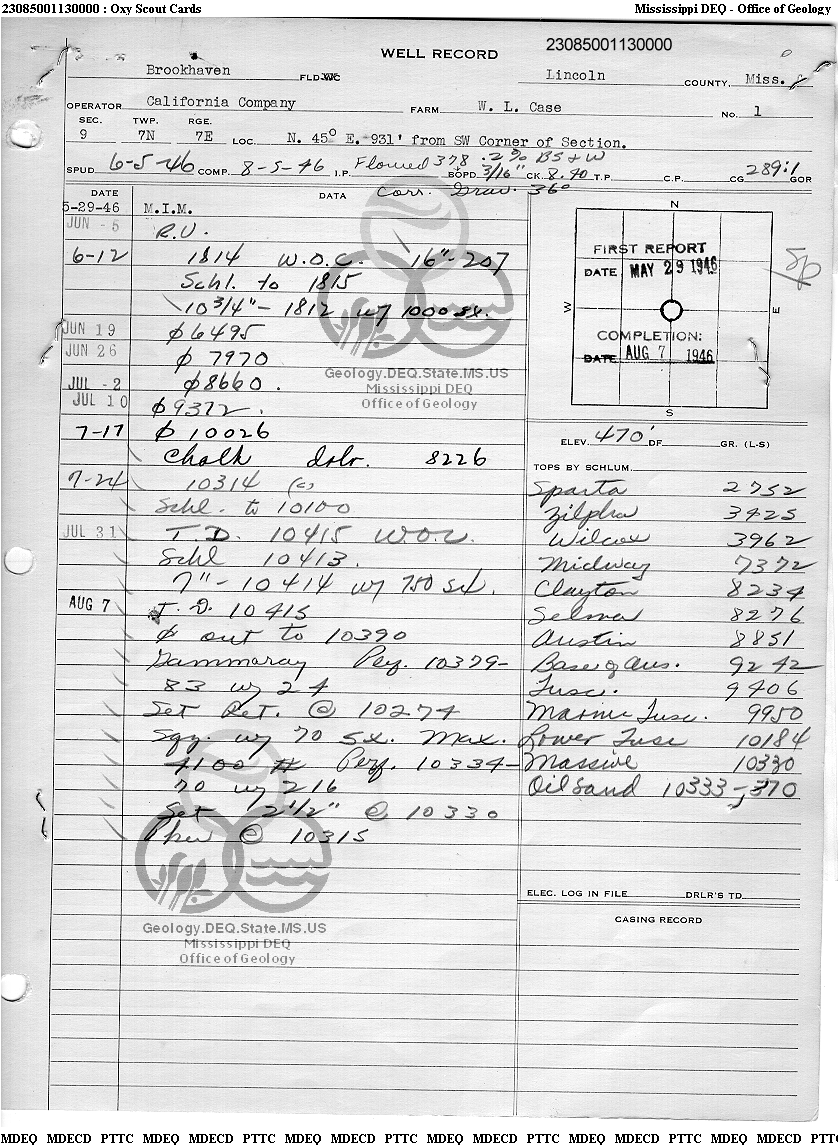 23085001130000 : Oxy Scout Cards Mississippi DEQ - Office of Geology
WELL RECORD 23085001130000
Brookhaven FLD-WC Lincoln COUNTY, Miss.
OPERATOR California Company FARM W. L. Case No. 1
SEC. TWP. RGE.
9 7N 7E LOC. N. 45° E. 931' from SW Corner of Section.
SPUD 6-5-46 COMP. 8-5-46 I.P. Flowed 378 BOPD .2% BS+W 3/16" CK 8.40 T.P. C.P. CG 289:1 GOR
Corr. Grav. 36°
DATE DATA
5-29-46 M.I.M.
JUN - 5 R.U.
6-12 1814 W.O.C. 16"-207
Schl. to 1815
10 3/4"- 1812 w/ 1000 sx.
JUN 19 ϕ 6495
JUN 26 ϕ 7970
JUL - 2 ϕ 8660.
JUL 10 ϕ 9372.
7-17 ϕ 10026
Chalk drlr. 8226
7-24 10314 (c)
Schl. to 10100
JUL 31 T.D. 10415 W.O.C.
Schl 10413.
7"- 10414 w/ 750 sx.
AUG 7 T.D. 10415
ϕ out to 10390
Gammaray Perf. 10379-
83 w/ 24
Set Ret. @ 10274
Sqz. w/ 70 sx. Max.
4100 # Perf. 10334-
70 w/ 216
Set 2 1/2" @ 10330
Pkr @ 10315
N
W E
S
FIRST REPORT
DATE MAY 29 1946
COMPLETION:
DATE AUG 7 1946
ELEV. 470' DF GR. (L-S)
TOPS BY SCHLUM.
Sparta 2752
Zilpha 3425
Wilcox 3962
Midway 7372
Clayton 8234
Selma 8276
Austin 8851
Base of Aus. 9242
Tusc. 9406
Marine Tusc. 9950
Lower Tusc 10184
Massive 10330
Oil Sand 10333-370
ELEC. LOG IN FILE DRLR'S TD
CASING RECORD
Geology.DEQ.State.MS.US
Mississippi DEQ
Office of Geology
Geology.DEQ.State.MS.US
Mississippi DEQ
Office of Geology
MDEQ MDECD PTTC MDEQ MDECD PTTC MDEQ MDECD PTTC MDEQ MDECD PTTC MDEQ MDECD PTTC MDEQ MDECD PTT